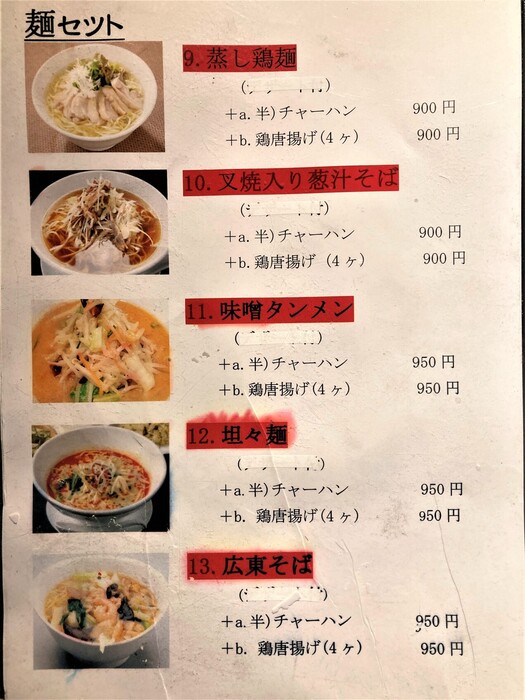 麺セット
9. 蒸し鶏麺
+a. 半)チャーハン 900 円
+b. 鶏唐揚げ(4 ヶ) 900 円
10. 叉焼入り葱汁そば
+a. 半)チャーハン 900 円
+b. 鶏唐揚げ (4 ヶ) 900 円
11. 味噌タンメン
+a. 半)チャーハン 950 円
+b. 鶏唐揚げ(4 ヶ) 950 円
12. 坦々麺
+a. 半)チャーハン 950 円
+b. 鶏唐揚げ(4 ヶ) 950 円
13. 広東そば
+a. 半)チャーハン 950 円
+b. 鶏唐揚げ(4 ヶ) 950 円